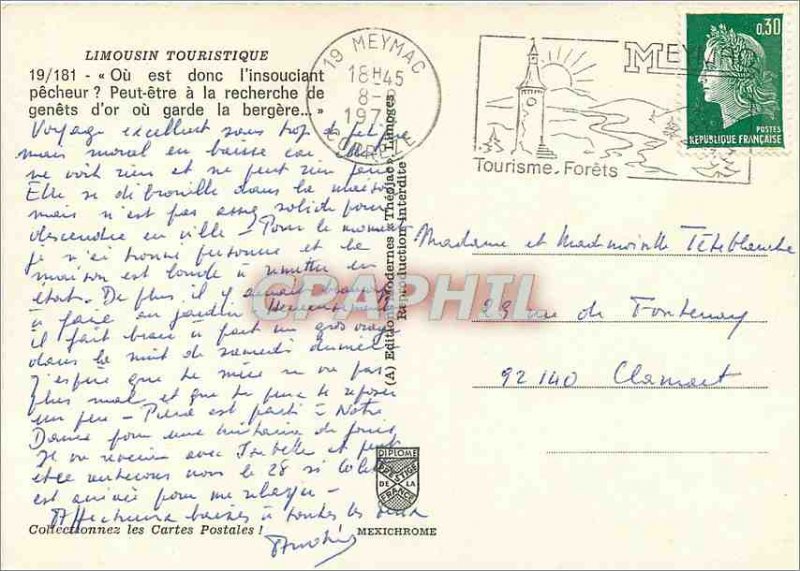 LIMOUSIN TOURISTIQUE
19/181 - « Où est donc l'insouciant
pêcheur ? Peut-être à la recherche de
genêts d'or où garde la bergère... »
Voyage excellent sans trop de fatigue
mais moral en baisse car
ne voit rien et ne peut rien faire
Elle se débrouille dans la maison
mais n'est pas assez solide pour
descendre en ville - Pour le moment
je n'ai trouvé personne et la
maison est lourde à remettre en
état. De plus il y
à faire au jardin Heureusement
il fait beau à part un gros orage
dans la nuit de samedi
J'espère que ta mère ne va pas
plus mal et que tu peux te reposer
un peu - Pierre est parti à Notre
Dame pour une huitaine de jours
Je reviendrai avec Isabelle et peut
être rentrerons nous le 28 si
est arrivée pour me
Affectueux baisers à toutes les deux
Collectionnez les Cartes Postales !
MEXICHROME
(A) Editions Modernes « Théojac » Limoges
Reproduction Interdite
DIPLOME
PRESTIGE
DE LA
FRANCE
19 MEYMAC
18H45
8-
CORREZE
MEYMAC
Tourisme. Forêts
0,30
POSTES
REPUBLIQUE FRANÇAISE
Madame et Mademoiselle Têteblanche
29 rue de Fontenay
92140 Clamart
CPAPHIL